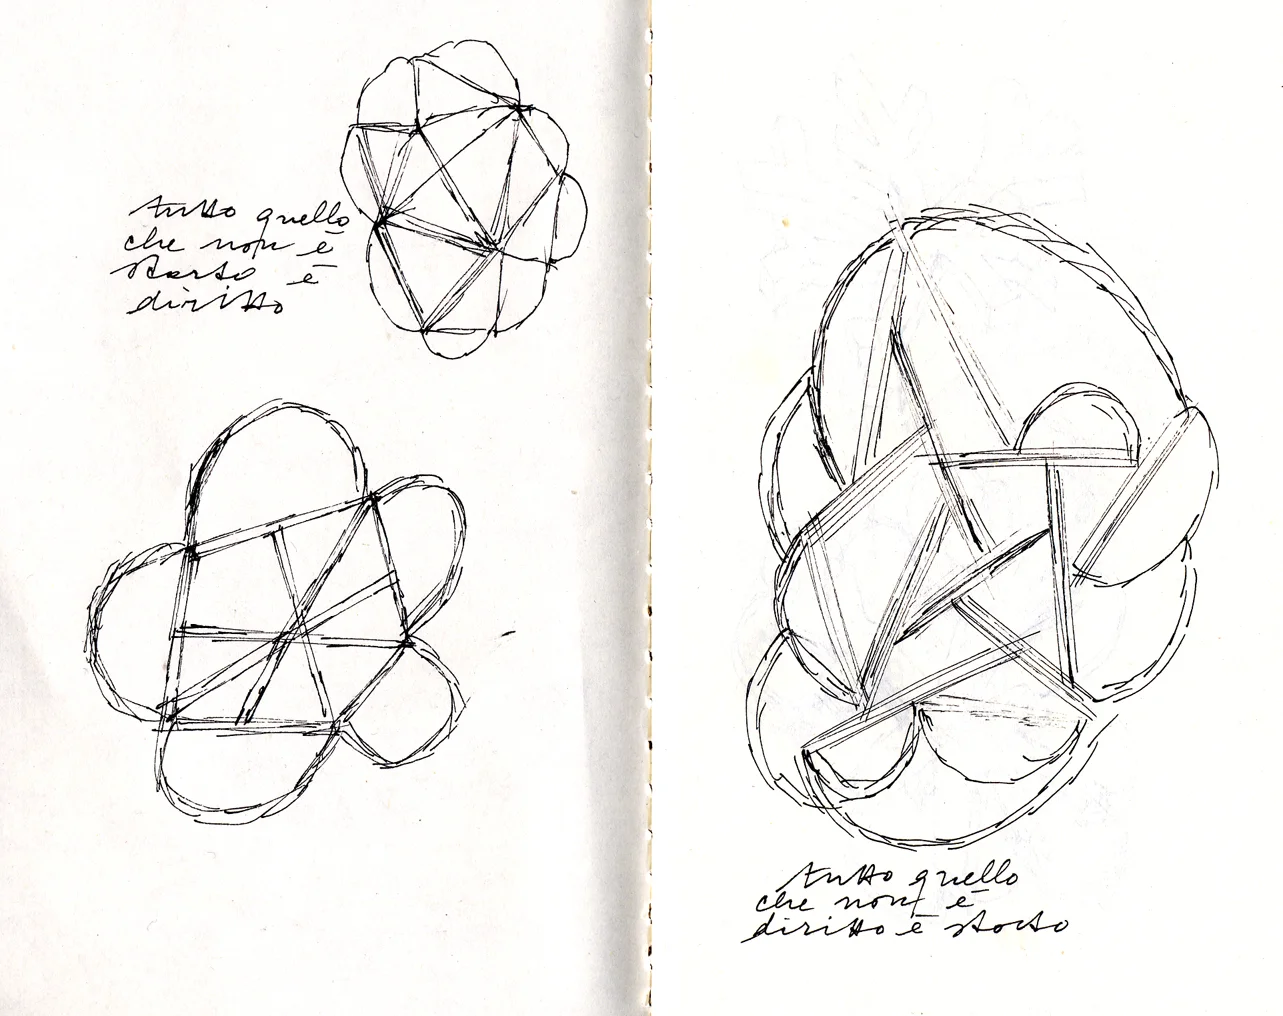 tutto quello
che non è
storto è
diritto
tutto quello
che non è
diritto è storto